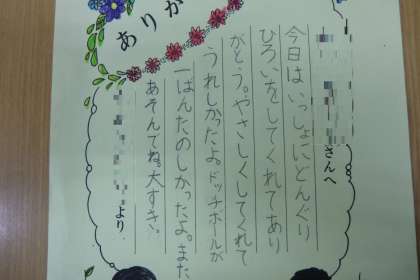 ありが
さんへ
今日はいっしょにどんぐり
ひろいをしてくれてあり
がとう。やさしくしてくれて
うれしかったよ。ドッチボールが
一ばんたのしかったよ。また、
あそんでね。大すき!
より